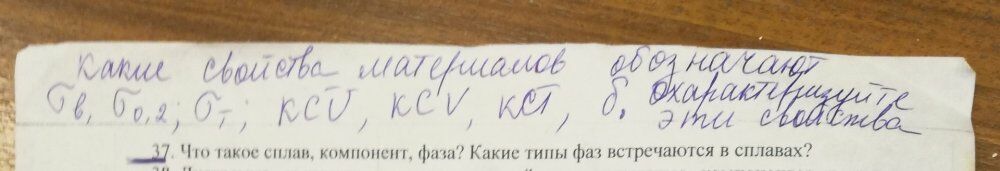 какие свойства материалов обозначают
σв, σ0,2; σт; KCU, KCV, KCT, δ. Охарактеризуйте
эти свойства
37. Что такое сплав, компонент, фаза? Какие типы фаз встречаются в сплавах?